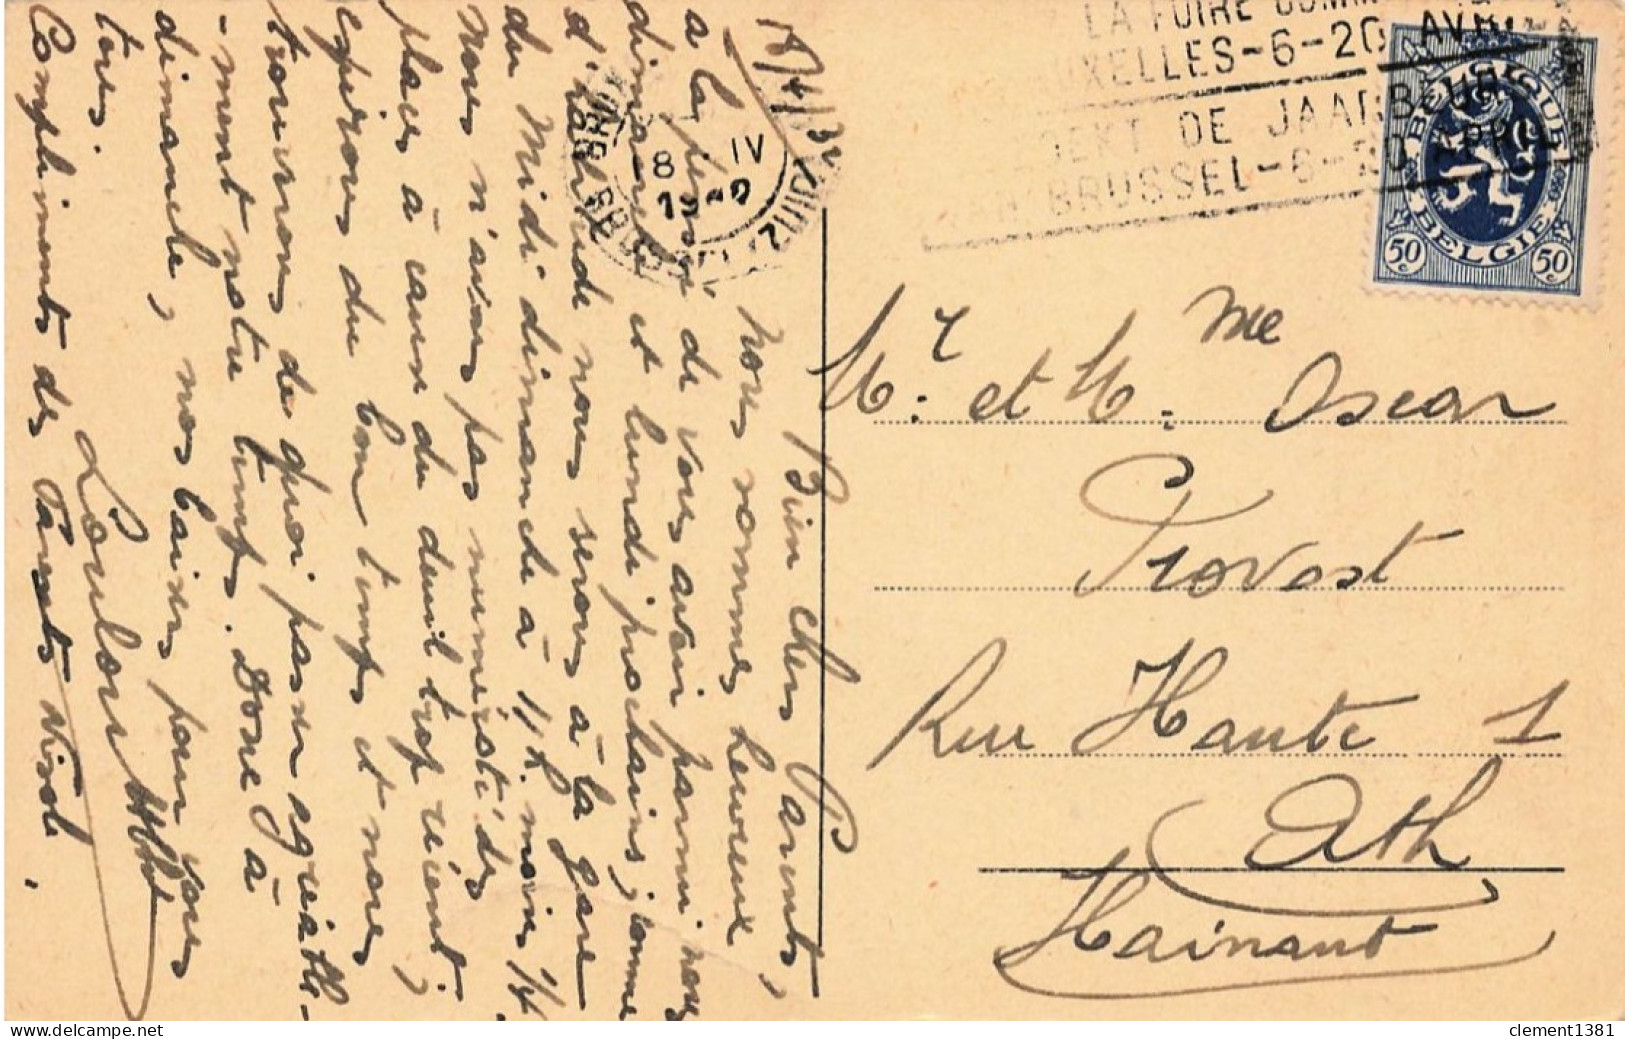 18/4/32
Bien chers Parents,
Nous sommes heureux
à la pensée de vous avoir parmi nous
dimanche et lundi prochains; comme
d'habitude nous serons à la gare
du Midi dimanche à 11 h. moins 1/4.
Nous n'avons pas numéroté des
places à cause du deuil trop récent;
espérons du bon temps et nous
trouverons de quoi passer agréable-
-ment notre temps. Donc à
dimanche, nos baisers pour vous
tous.
Loulou
Compliments des Parents
LA FOIRE COMM
UXELLES-6-20 AVR
DE JAARBEURS
VAN BRUSSEL-6-20 APRIL
8 IV
BELGIQUE
BELGIE
50 c
50 c
Mr. et Mme. Oscar
Provost
Rue Haute 1
Ath
Hainaut
clement1381